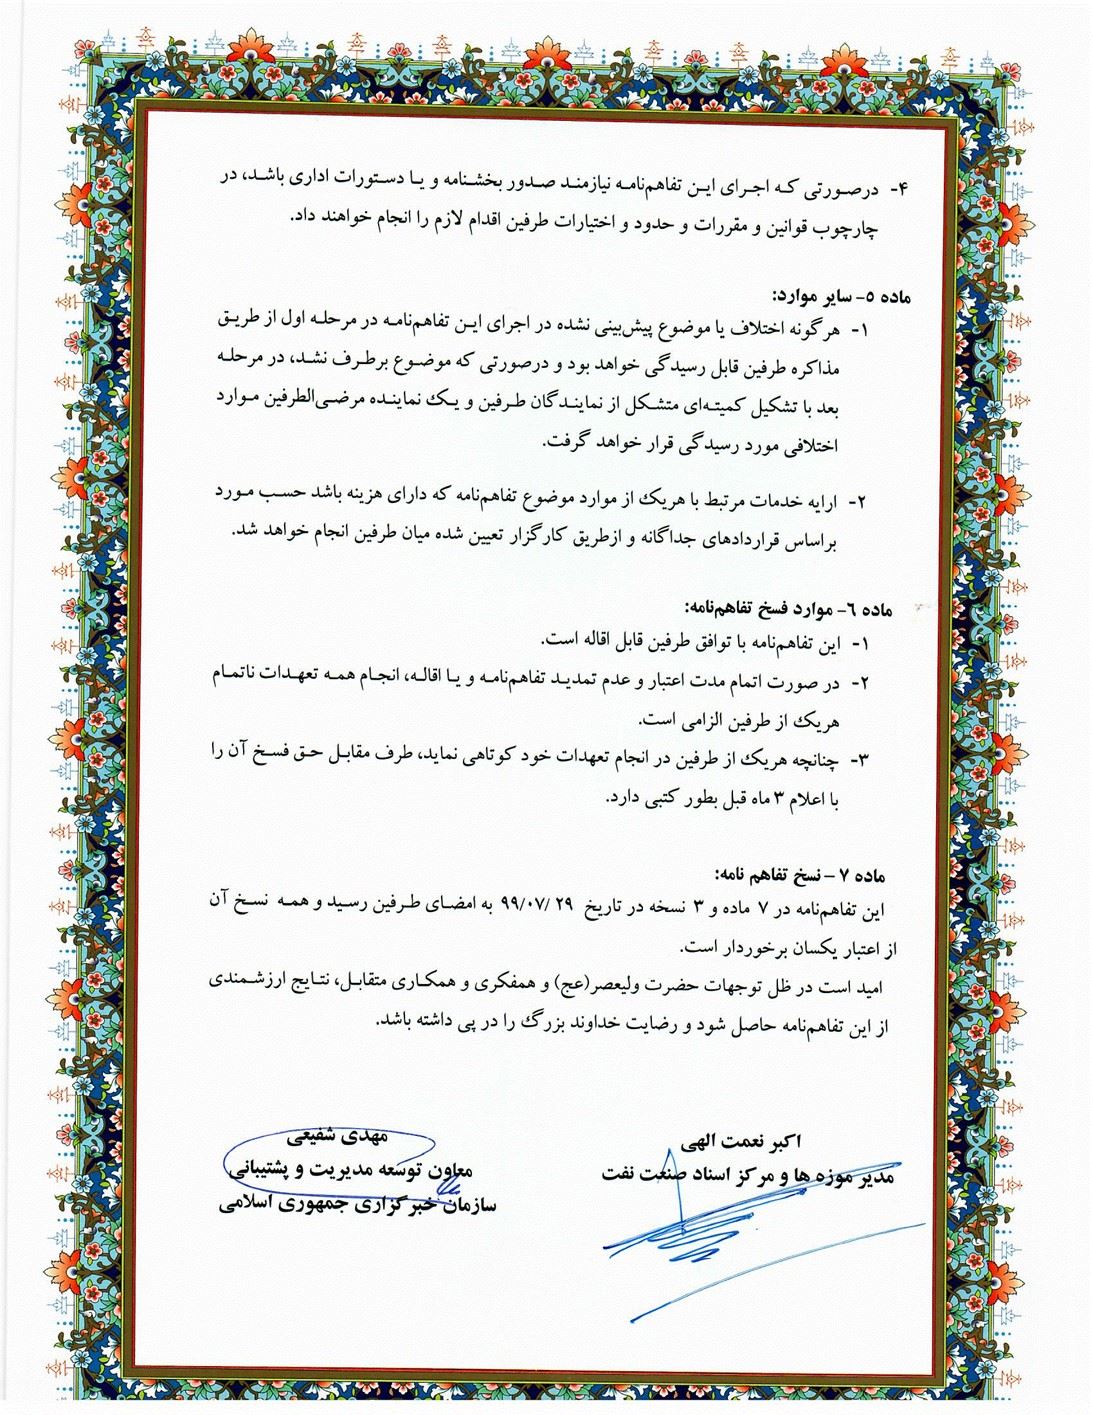 ۴- درصورتی که اجرای این تفاهم‌نامه نیازمند صدور بخشنامه و یا دستورات اداری باشد، در
چارچوب قوانین و مقررات و حدود و اختیارات طرفین اقدام لازم را انجام خواهند داد.
ماده ۵- سایر موارد:
۱- هرگونه اختلاف یا موضوع پیش‌بینی نشده در اجرای این تفاهم‌نامه در مرحله اول از طریق
مذاکره طرفین قابل رسیدگی خواهد بود و درصورتی که موضوع برطرف نشد، در مرحله
بعد با تشکیل کمیته‌ای متشکل از نمایندگان طرفین و یک نماینده مرضی‌الطرفین موارد
اختلافی مورد رسیدگی قرار خواهد گرفت.
۲- ارایه خدمات مرتبط با هریک از موارد موضوع تفاهم‌نامه که دارای هزینه باشد حسب مورد
براساس قراردادهای جداگانه و ازطریق کارگزار تعیین شده میان طرفین انجام خواهد شد.
ماده ۶- موارد فسخ تفاهم‌نامه:
۱- این تفاهم‌نامه با توافق طرفین قابل اقاله است.
۲- در صورت اتمام مدت اعتبار و عدم تمدید تفاهم‌نامه و یا اقاله، انجام همه تعهدات ناتمام
هریک از طرفین الزامی است.
۳- چنانچه هریک از طرفین در انجام تعهدات خود کوتاهی نماید، طرف مقابل حق فسخ آن را
با اعلام ۳ ماه قبل بطور کتبی دارد.
ماده ۷ – نسخ تفاهم نامه:
این تفاهم‌نامه در ۷ ماده و ۳ نسخه در تاریخ ۹۹/۰۷/۲۹ به امضای طرفین رسید و همه نسخ آن
از اعتبار یکسان برخوردار است.
امید است در ظل توجهات حضرت ولیعصر(عج) و همفکری و همکاری متقابل، نتایج ارزشمندی
از این تفاهم‌نامه حاصل شود و رضایت خداوند بزرگ را در پی داشته باشد.
اکبر نعمت الهی
مدیر موزه ها و مرکز اسناد صنعت نفت
مهدی شفیعی
معاون توسعه مدیریت و پشتیبانی
سازمان خبرگزاری جمهوری اسلامی